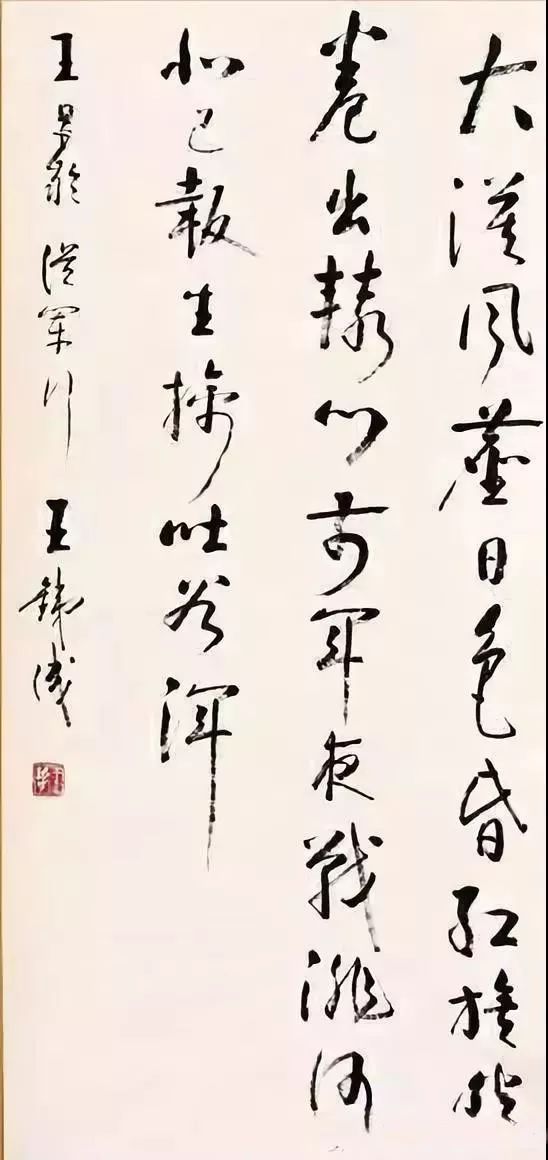 大漠风尘日色昏红旗半
卷出辕门前军夜战洮河
北已报生擒吐谷浑
王昌龄从军行 王铁成